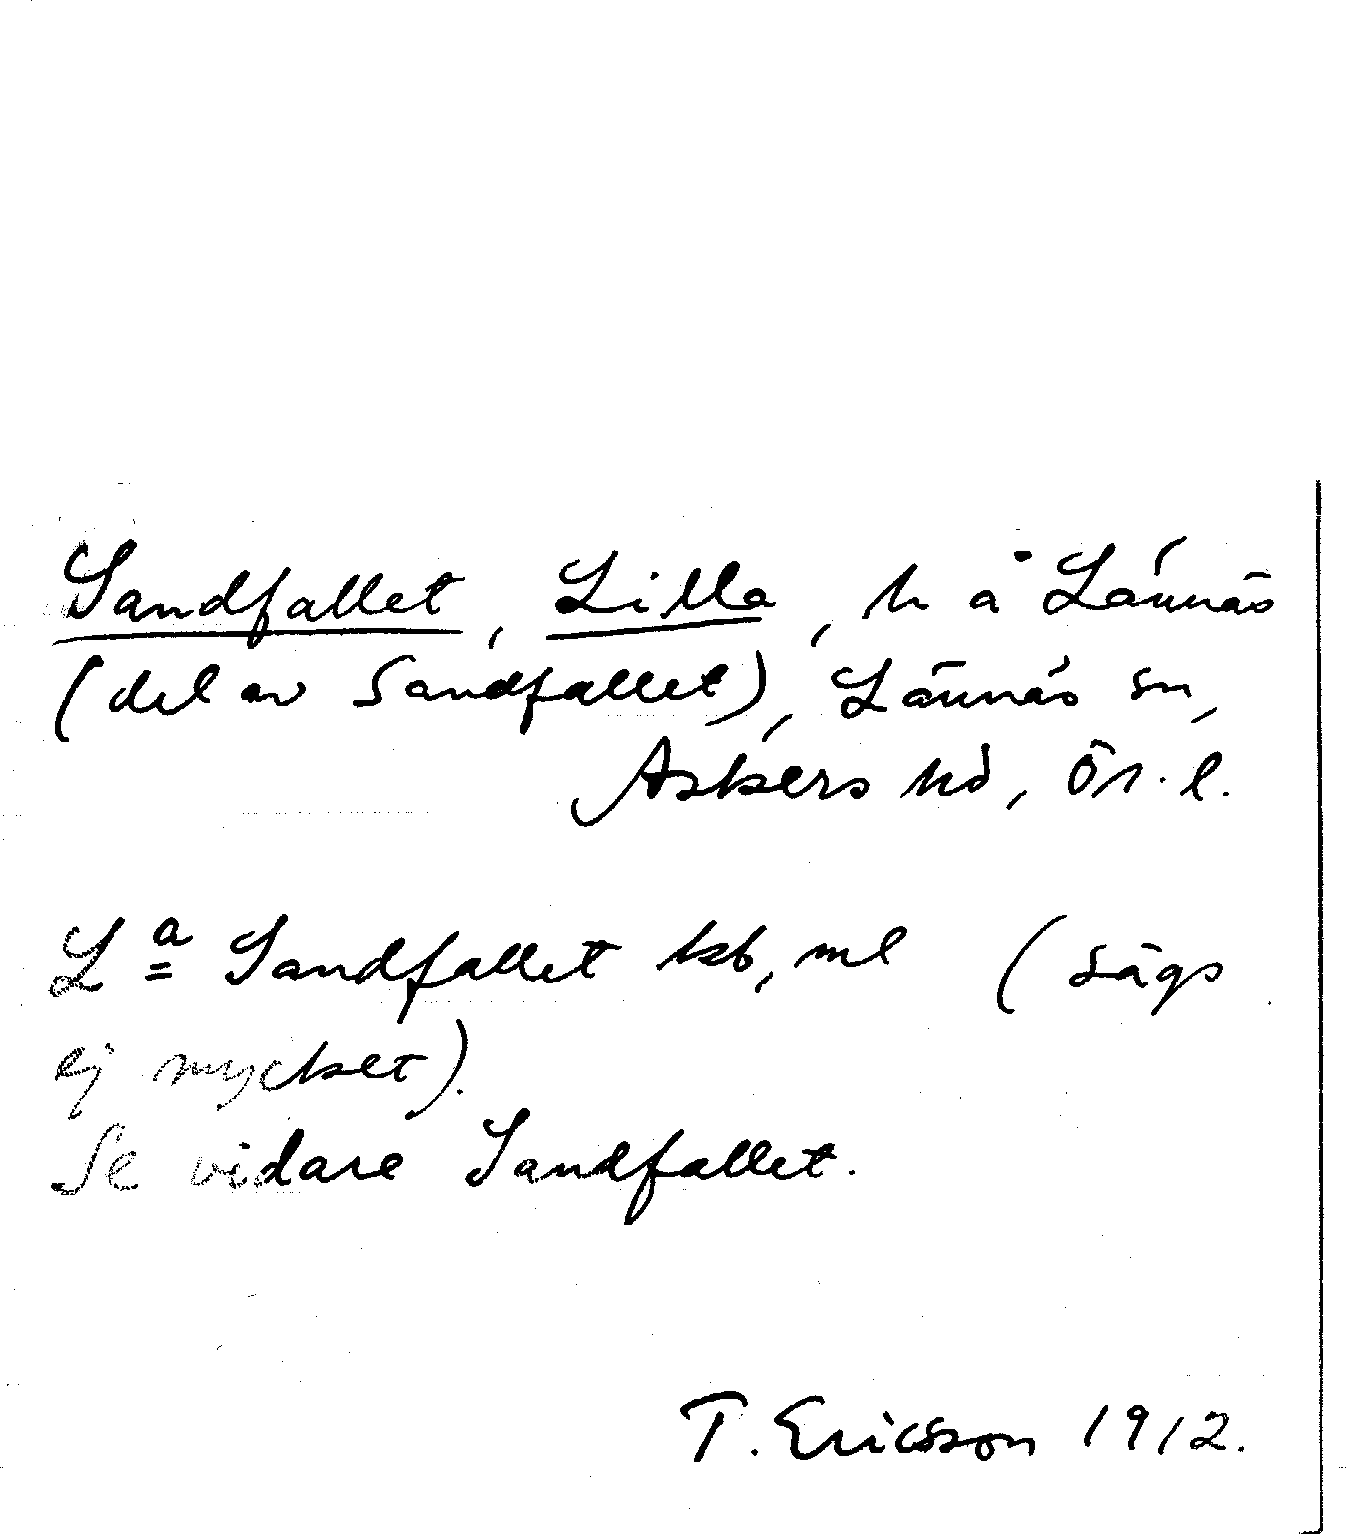 Sandfallet, Lilla, h å Lännäs
(del av Sandfallet), Lännäs sn,
Askers hd, Ör. l.
L a Sandfallet kb, ml (sägs
ej mycket).
Se vidare Sandfallet.
T. Ericsson 1912.